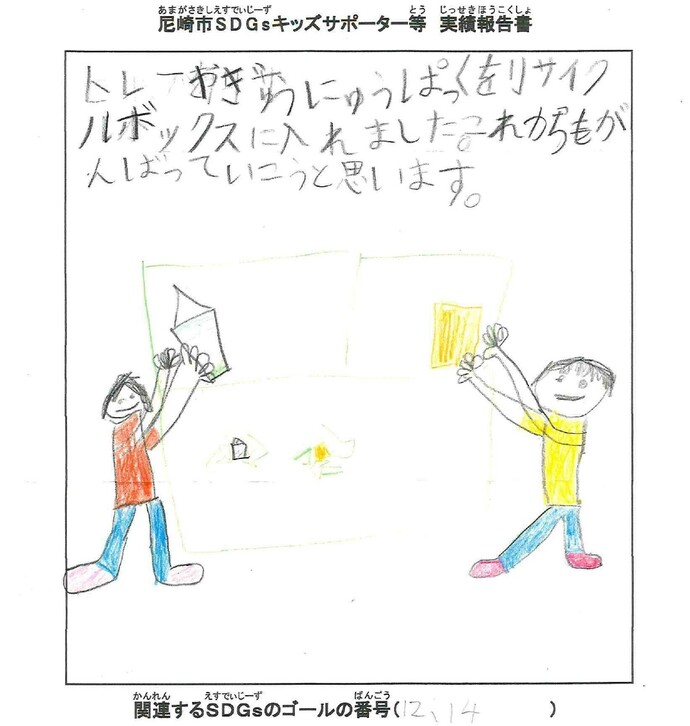 あまがさきしえすでぃじーず とう じっせきほうこくしょ
尼崎市SDGsキッズサポーター等 実績報告書
トレーおぎゅうにゅうぱっくをリサイク
ルボックスに入れました。これからもが
んばっていこうと思います。
かんれん えすでぃじーず ばんごう
関連するSDGsのゴールの番号(12、14)